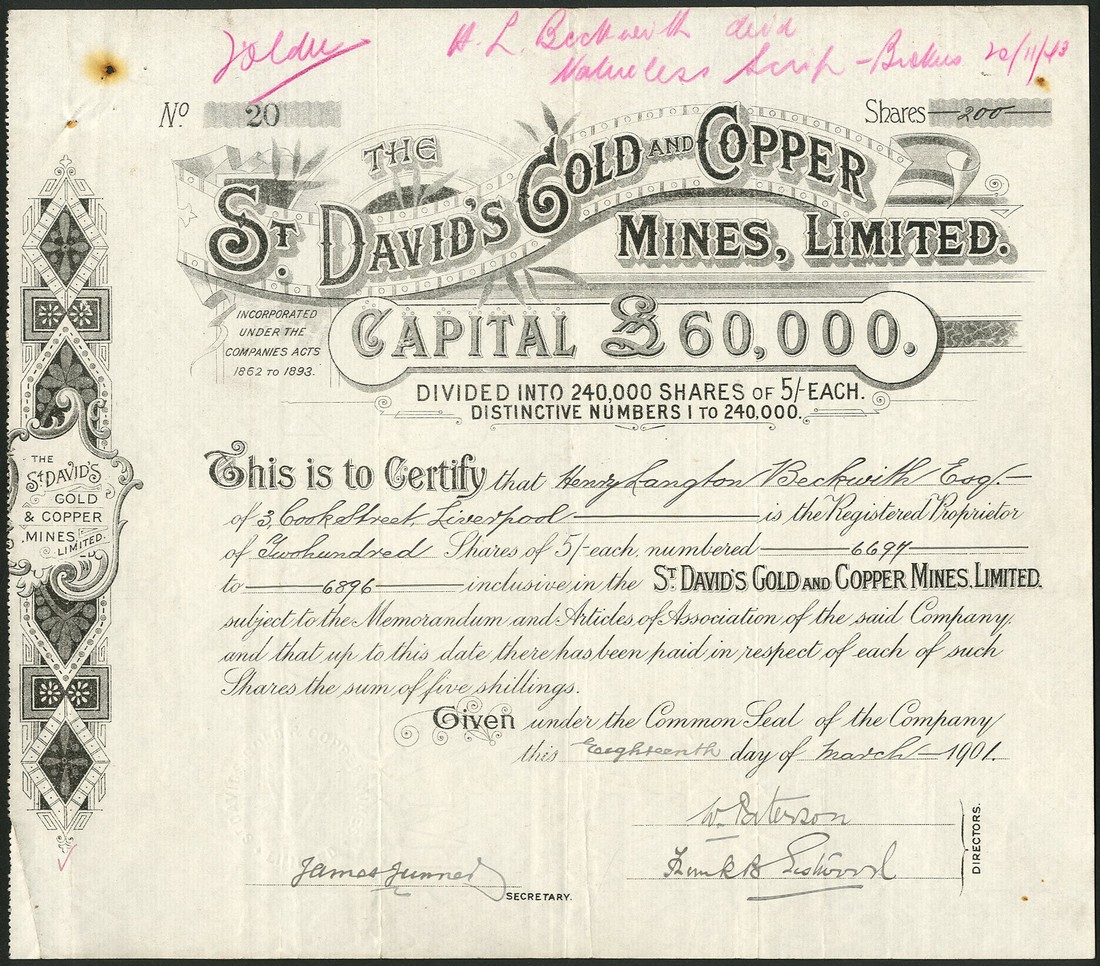 H. L. Beckwith decd
Valueless Scrip - 22/11/43
No. 20
Shares 200
THE
ST. DAVID'S GOLD AND COPPER
MINES, LIMITED.
INCORPORATED
UNDER THE
COMPANIES ACTS
1862 TO 1893.
CAPITAL £60,000.
DIVIDED INTO 240,000 SHARES OF 5/- EACH.
DISTINCTIVE NUMBERS 1 TO 240,000.
THE
ST DAVID'S
GOLD
& COPPER
MINES,
LIMITED.
This is to Certify that Henry Langton Beckwith Esq.
of 3, Cook Street, Liverpool is the Registered Proprietor
of Two hundred Shares of 5/- each, numbered 6697
to 6896 inclusive in the ST. DAVID'S GOLD AND COPPER MINES. LIMITED.
subject to the Memorandum and Articles of Association of the said Company,
and that up to this date there has been paid in respect of each of such
Shares the sum of five shillings.
Given under the Common Seal of the Company
this Eighteenth day of March 1901.
W. Paterson
Frank B Eastwood
DIRECTORS.
James
SECRETARY.